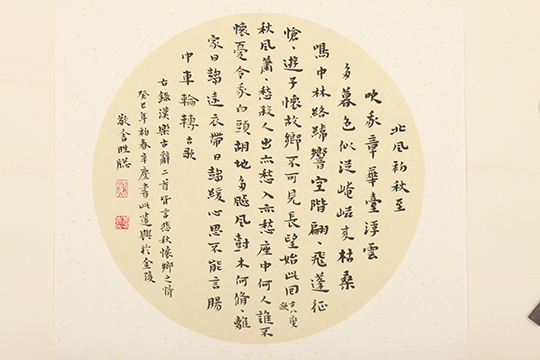 北風初秋至
吹我章華臺浮雲
多暮色似從崦嵫來枯桑
鳴中林絡緯響空階翩、飛蓬征
愴、遊子懷故鄉不可見長望始此回 古八變歌
秋風蕭、愁殺人出亦愁入亦愁座中何人誰不
懷憂令我白頭胡地多飈風樹木何脩、離
家日趨遠衣帶日趨緩心思不能言腸
中車輪轉 古歌
右錄漢樂古辭二首皆言悲秋懷鄉之情
癸巳年初春辛慶書此遣興於金陵